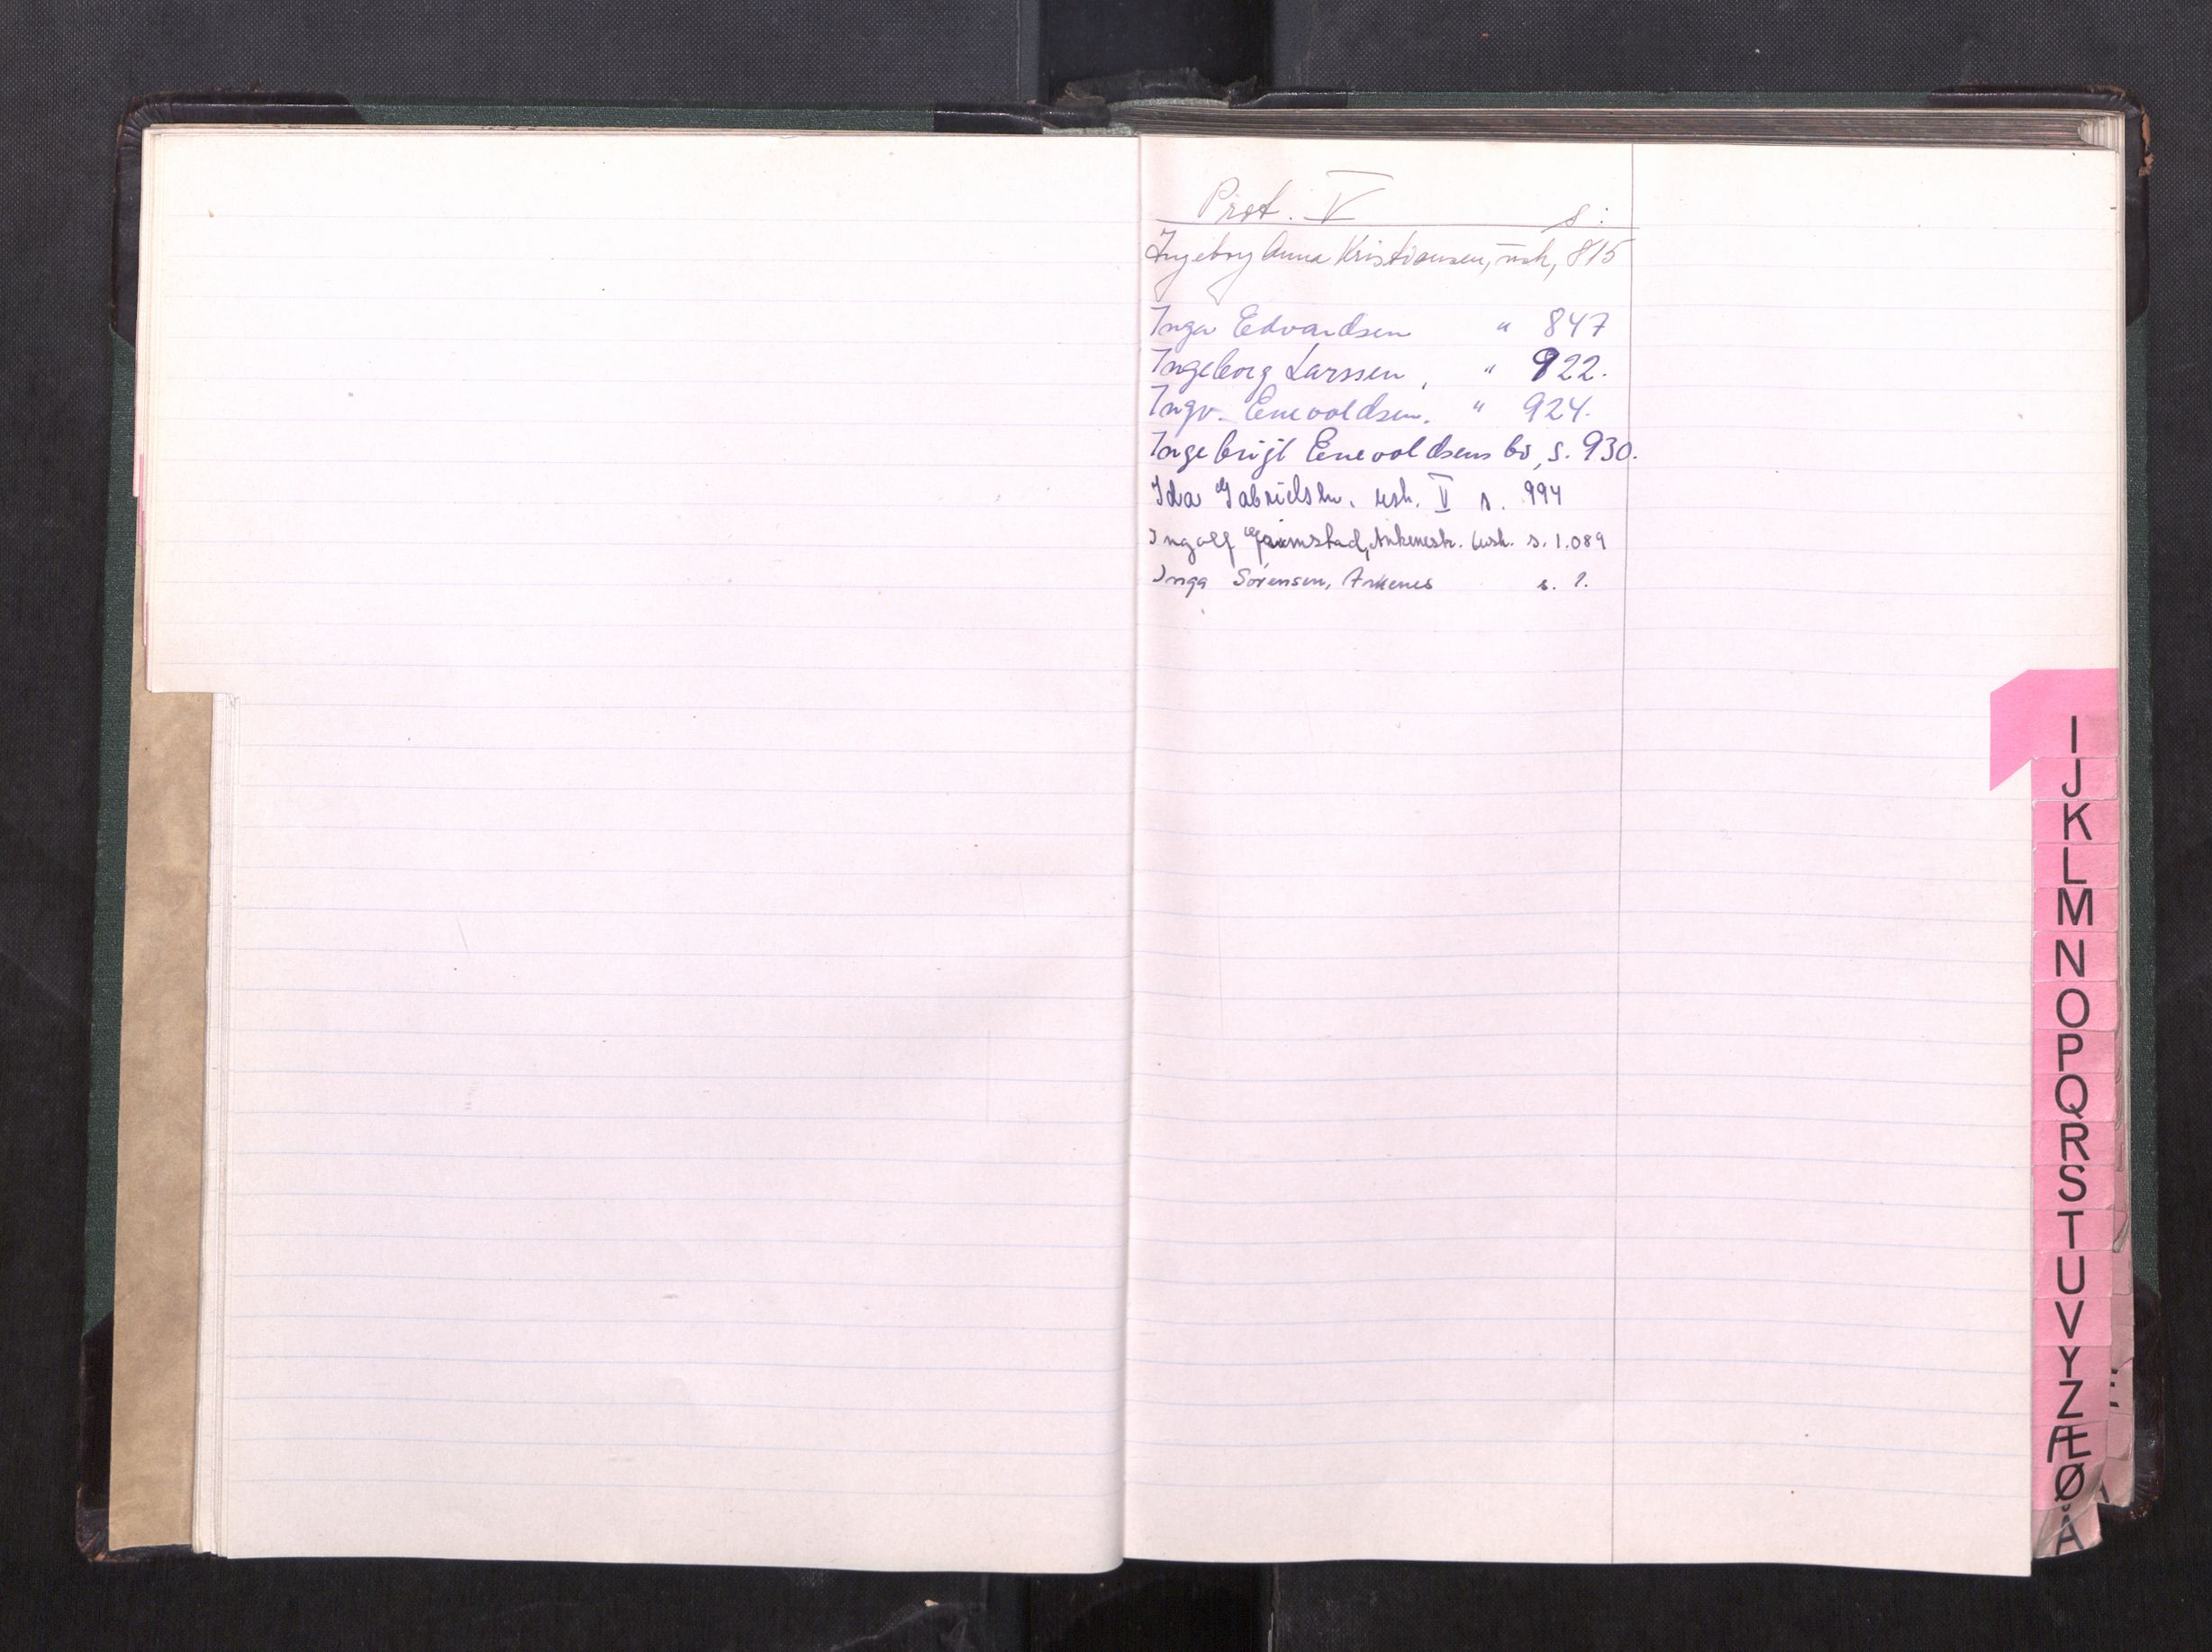 Prot. V s:
Ingeborg Anna Kristiansen, usk, 815
Inga Edvardsen " 847
Ingeborg Larssen, " 922.
Ingv. Enevoldsen. " 924.
Ingebrigt Enevoldsens bo, s. 930.
Ida Gabrielsen. usk. V s. 994
Ingolf Grimstad, Ankenesstr. usk. s. 1.089
Inga Sørensen, Ankenes s. 1.
I
J
K
L
M
N
O
P
Q
R
S
T
U
V
Y
Z
Æ
Ø
Å